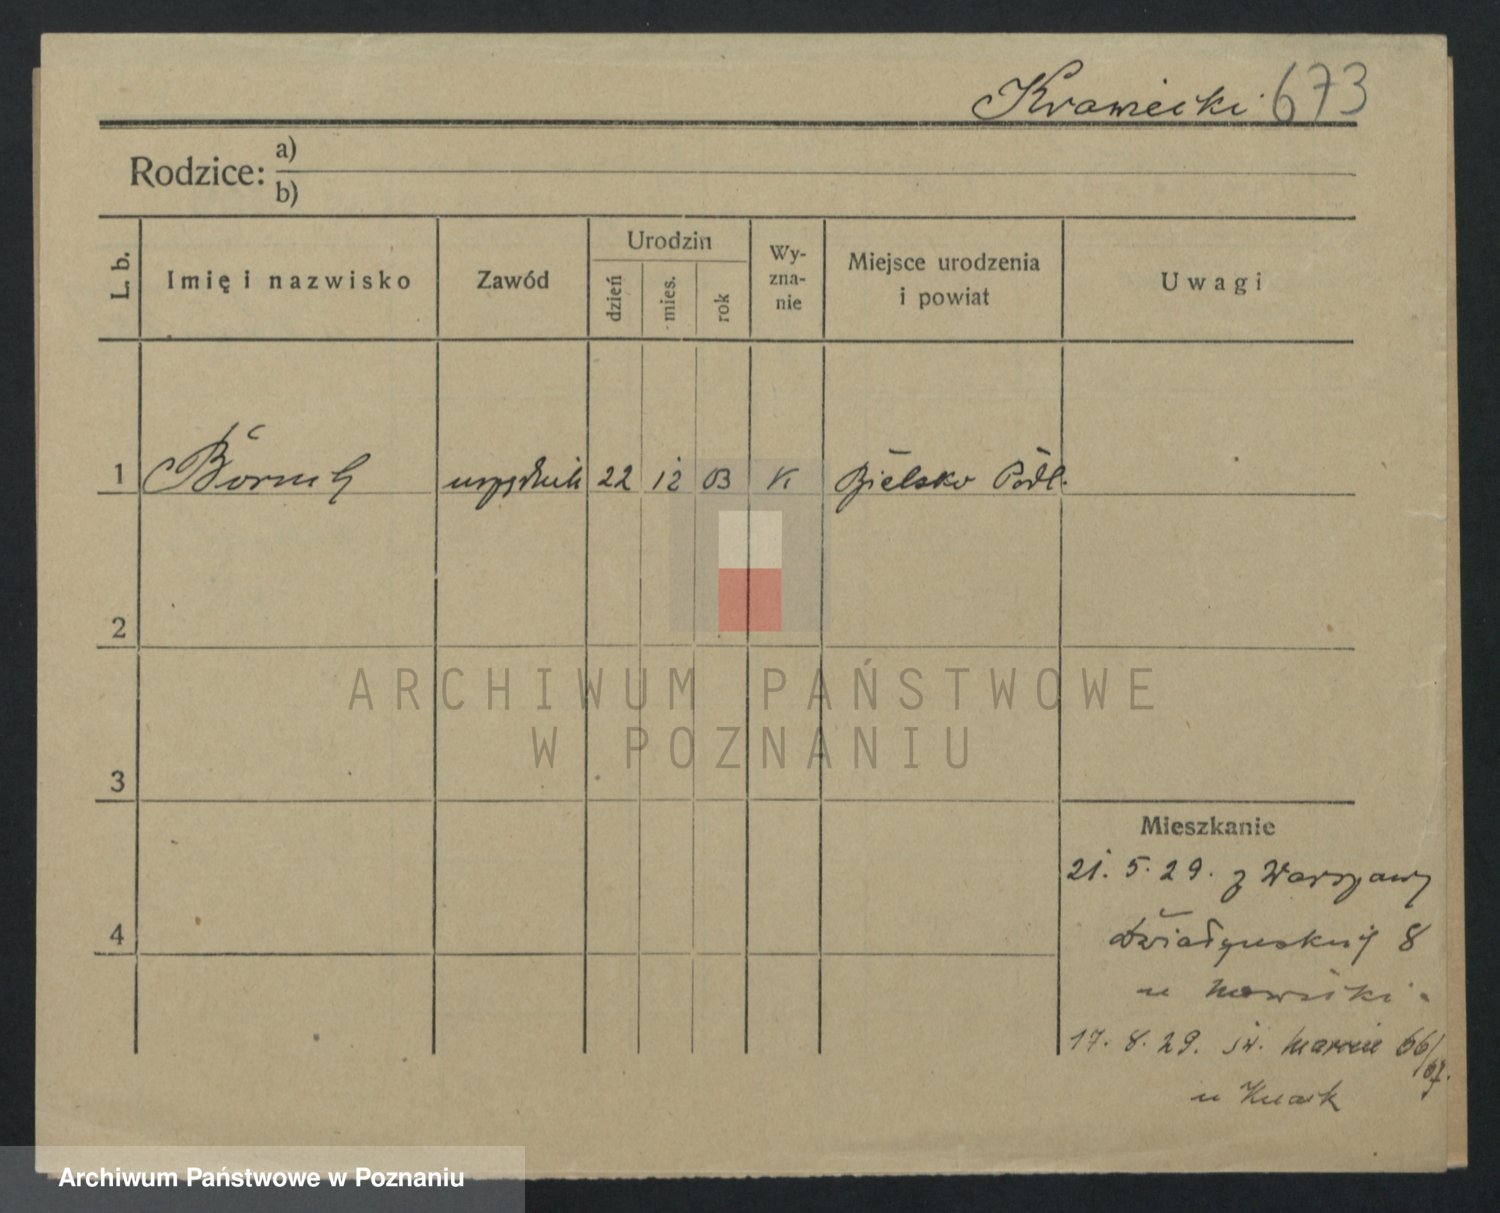 Krawiecki 673
Rodzice: a)
b)
L. b.
Imię i nazwisko
Zawód
Urodzin
dzień
mies.
rok
Wy-
zna-
nie
Miejsce urodzenia
i powiat
Uwagi
1 urzędnik 22 12 03 K Bielsko Podl.
2
3
4
Mieszkanie
21. 5. 29. z Warszawy
8
u
17. 8. 29. św. Marcin 66/67.
u
ARCHIWUM PAŃSTWOWE
W POZNANIU
Archiwum Państwowe w Poznaniu